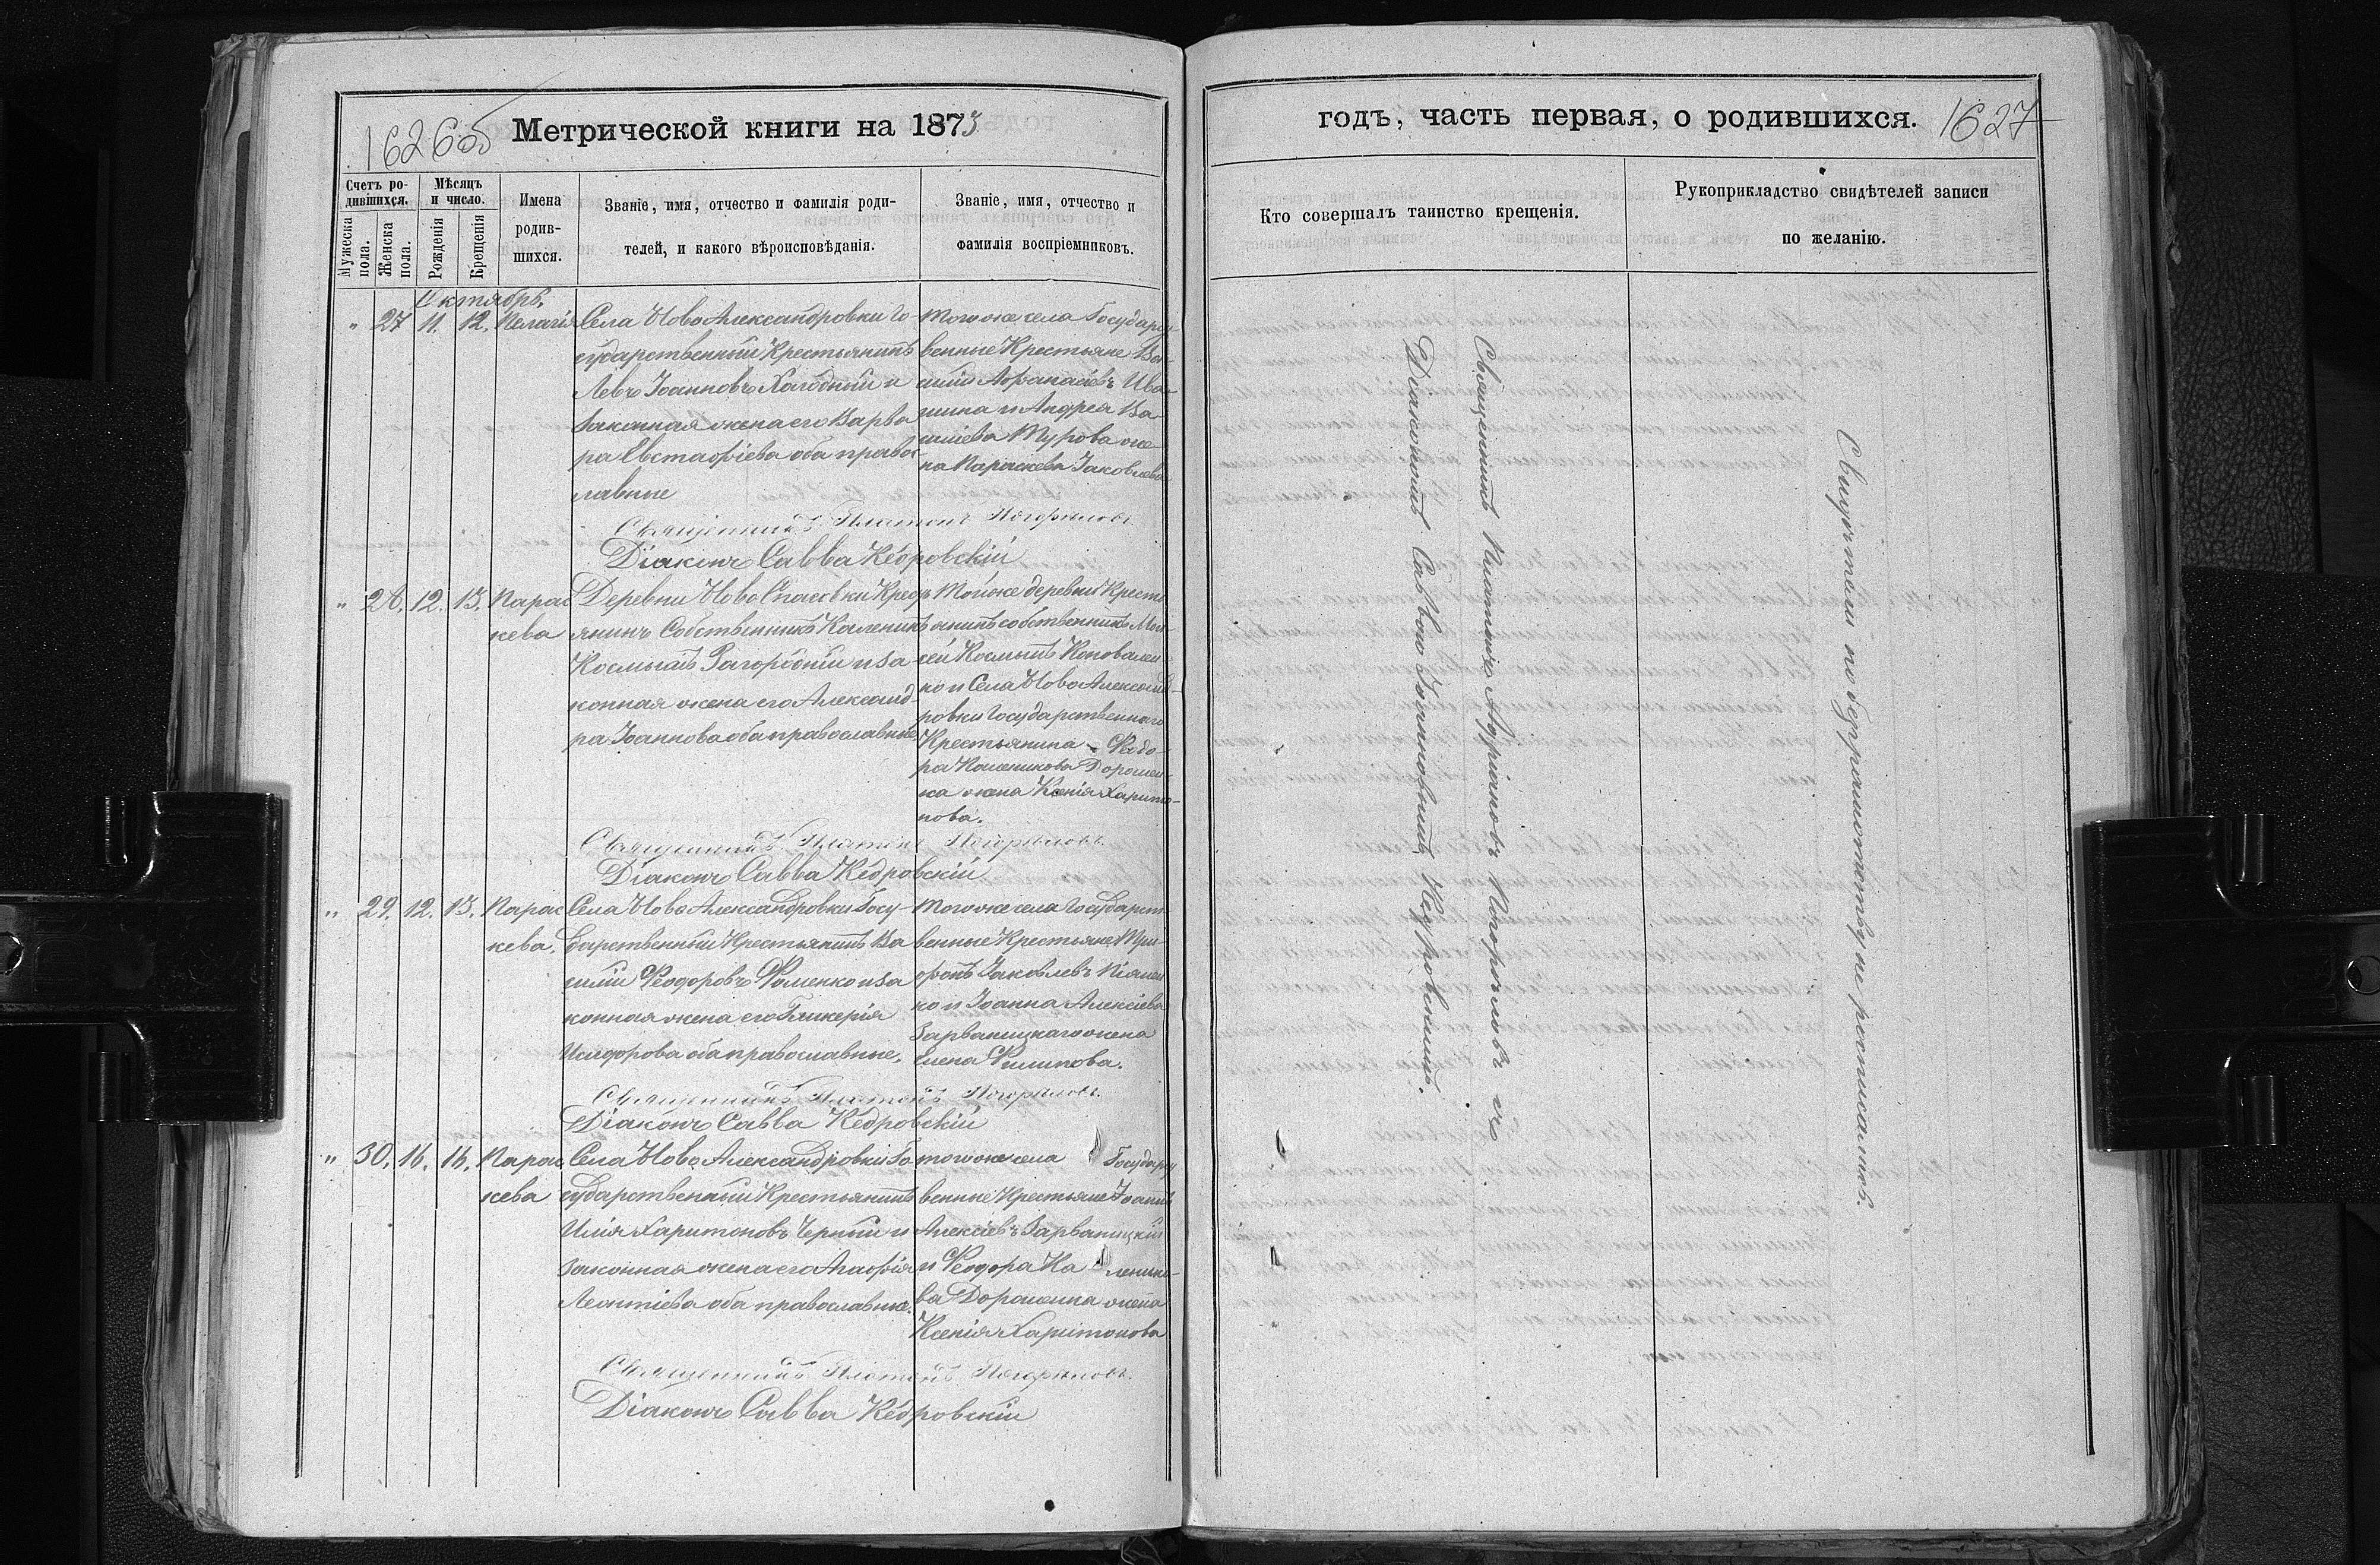 1626об
Метрической книги на 1873
Счетъ ро-
дившихся.
Мужеска
пола.
Женска
пола.
Мѣсяцъ
и число.
Рожденія
Крещенія
Имена
родив-
шихся.
Званіе, имя, отчество и фамилія роди-
телей, и какого вѣроисповѣданія.
Званіе, имя, отчество и
фамилія воспріемниковъ.
Октябрь.
" 27 11. 12. Пелагія
Села Ново Александровки Го-
сударственный Крестьянинъ
Левъ Іоанновъ Холодный и
законная жена его Варва
ра Евстафіева оба правос
лавные
Тогоже села Государст
венные Крестьяне Ва-
силій Афанасіевъ Ива-
шина и Андрея Ва-
силіева Турова же
на Параскева Іаковлева
Священникъ Платонъ Погорѣловъ.
Діаконъ Савва Кедровскій
" 28. 12. 13. Парас
кева
Деревни Ново Спасовки Крест
янинъ Собственникъ Каленикъ
Космынъ Загородній и за-
конная жена его Александ-
ра Іоаннова оба православные
Тойже деревни Кресть
янинъ собственникъ Мои-
сей Космынъ Коновален-
ко и Села Ново Александ-
ровки Государственнаго
Крестьянина Феодо-
ра Каленикова Дорошен-
ка жена Ксенія Харито-
нова.
Священникъ Платонъ Погорѣловъ.
Діаконъ Савва Кедровскій
" 29. 12. 13. Парас
кева.
Села Ново Александровки Госу-
дарственный Крестьянинъ Ва
силій Феодоровъ Фоменко и за
конная жена его Гликерія
Исидорова оба православные,
Тогоже села Государст-
венные Крестьяне, Три-
фонъ Іаковлевъ Піянен
ко и Іоанна Алексіева
Зарваницкаго жена
Елена Филипова.
Священникъ Платонъ Погорѣловъ.
Діаконъ Савва Кедровскій
" 30. 16. 16. Парас
кева
Села Ново Александровки Го
сударственный Крестьянинъ
Илія Харитоновъ Черный и
законная жена его Агафія
Леонтіева оба православные.
тогоже села Государст
венные Крестьяне Іоаннъ
Алексіевъ Зарваницкій
и Феодора Ка ленико-
ва Дорошенка жена
Ксенія Харитонова
Священникъ Платонъ Погорѣловъ.
Діаконъ Савва Кедровскій
годъ, часть первая, о родившихся. 1627
Кто совершалъ таинство крещенія.
Рукоприкладство свидѣтелей записи
по желанію.
Священникъ Платонъ Адріановъ Погорѣловъ съ
Діакономъ Саввою Кедровскимъ.
Свидѣтели по безграмотству не росписались.